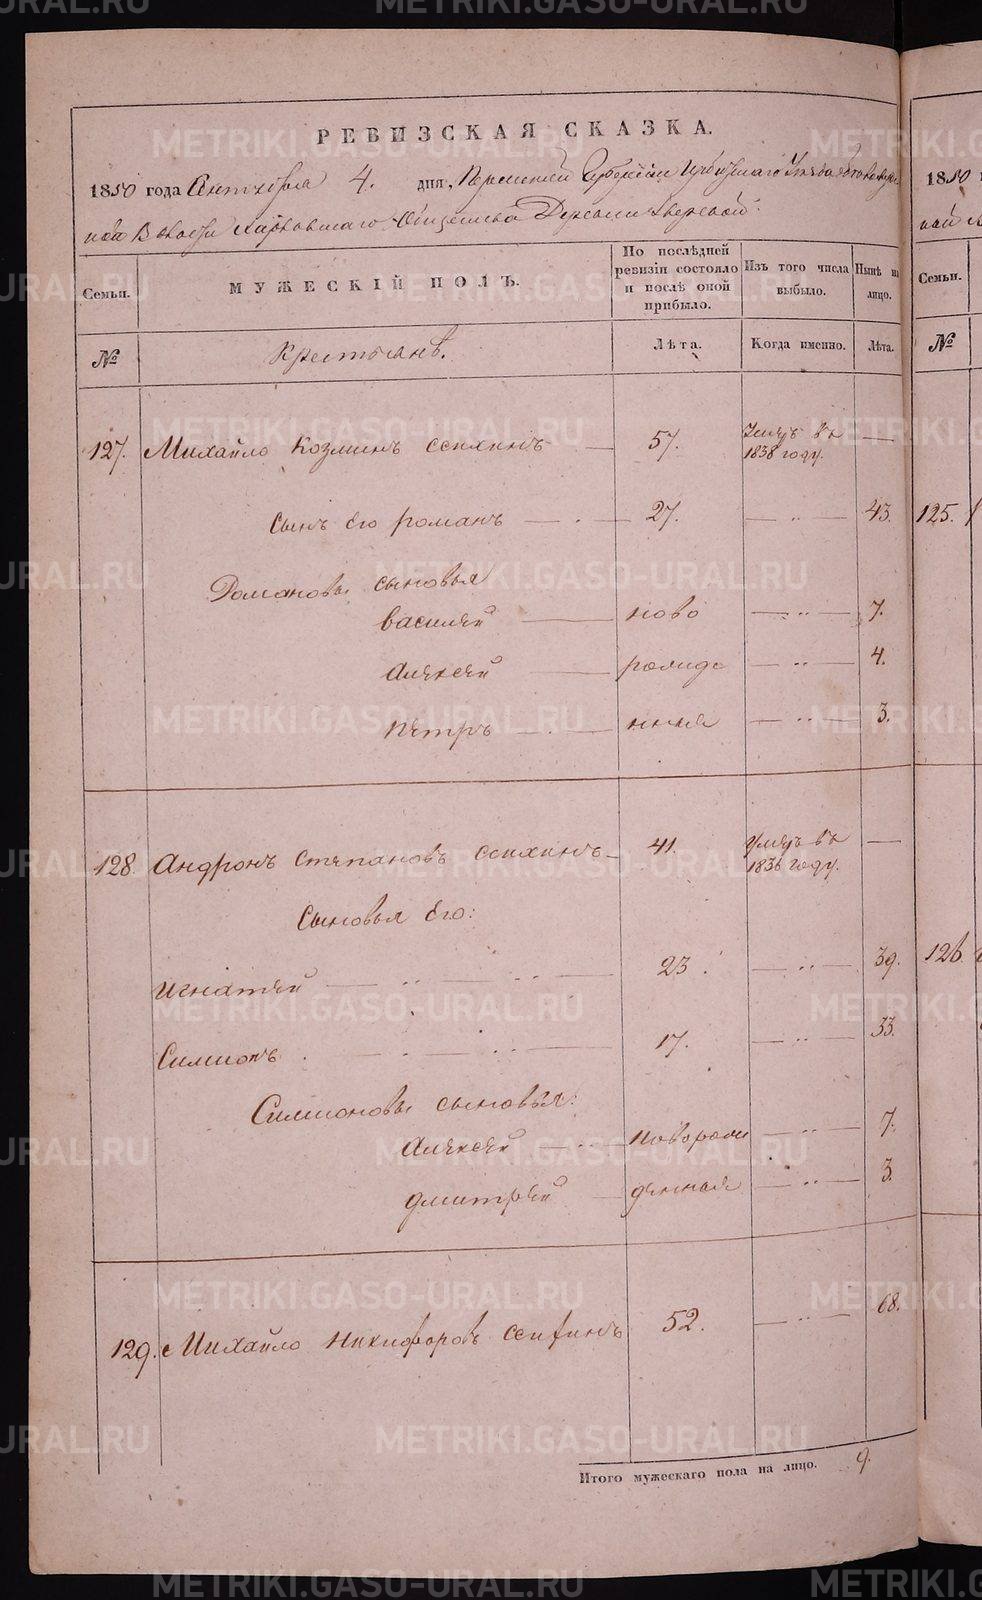 РЕВИЗСКАЯ СКАЗКА.
1850 года Октября 4. дня, Пермской Губернии Ирбитскаго Уезда
Волости Общества Деревни
Семьи.
МУЖЕСКІЙ ПОЛЪ.
По послѣдней ревизіи состояло и послѣ оной прибыло.
Изъ того числа выбыло.
Нынѣ на лицо.
№
Крестьянъ.
Лѣта.
Когда именно.
Лѣта.
127. Михайло Козминъ 57. Умеръ въ 1838 году. —
Сынъ Его романъ — 27. — „ — 43.
Романовы сыновья
Василей — ново — „ — 7.
Алексей — рожде — „ — 4.
Петръ — нныя — „ — 3.
128. Андронъ Степановъ 41. Умеръ въ 1836 году. —
Сыновья Его:
Игнатей — 23. — „ — 39.
Симионъ — 17. — „ — 33.
Симионовы сыновья:
Алексей — новорож — „ — 7.
Дмитрей — денныя — „ — 3.
129. Михайло Никифоровъ 52. — „ — 68.
Итого мужескаго пола на лицо. 9.
1850
Семьи.
№
125.
126.
METRIKI.GASO-URAL.RU